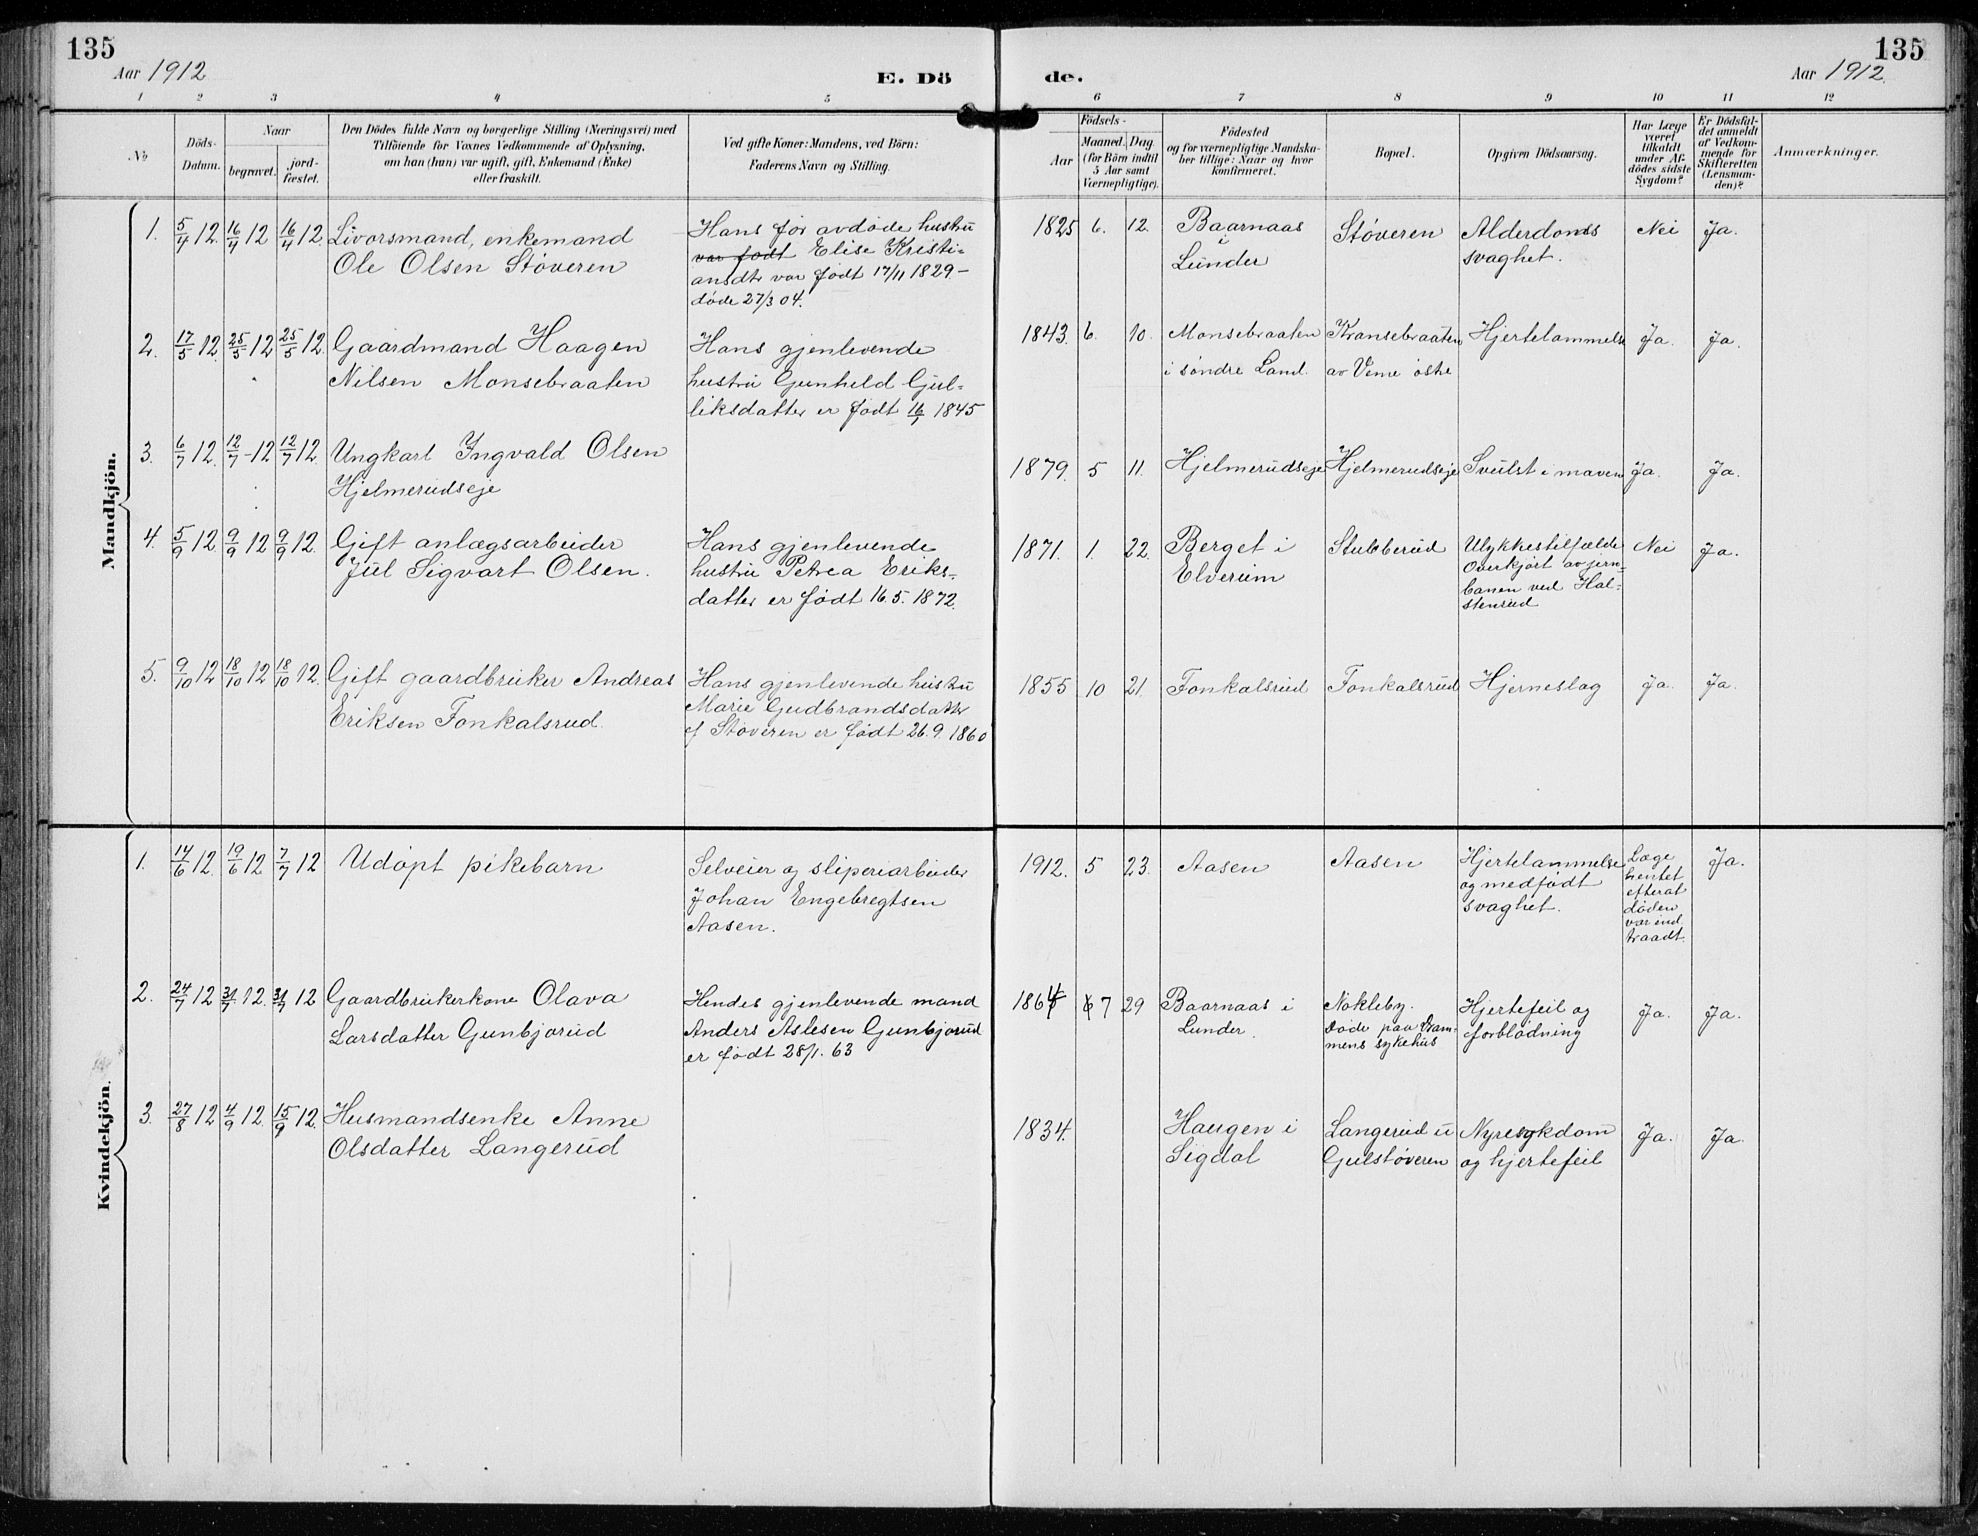 135
Aar 1912
E. Dö
de.
135
Aar 1912.
1 2 3 4 5
6 7 8 9 10 11 12
No
Döds-
Datum.
Naar
begravet.
jord-
fæstet.
Den Dödes fulde Navn og borgerlige Stilling (Næringsvei) med
Tilföiende for Voxnes Vedkommende af Oplysning,
om han (hun) var ugift, gift, Enkemand (Enke)
eller fraskilt.
Ved gifte Koner: Mandens, ved Börn:
Faderens Navn og Stilling.
Födsels-
Aar
Maaned. Dag
(for Börn indtil
5 Aar samt
Værnepligtige).
Födested
og for værnepligtige Mandska-
ber tillige: Naar og hvor
konfirmeret.
Bopæl.
Opgiven Dödsaarsag.
Har Læge
været
tilkaldt
under Af-
dödes sidste
Sygdom?
Er Dödsfal-
det anmeldt
af Vedkom-
mende for
Skifteretten
(Lensman-
den)?
Anmærkninger.
Mandkjön.
1. 5/4 12. 16/4 12 16/4 12.
Livørsmand, enkemand
Ole Olsen Støveren
Hans før avdøde hustru
var født Elise Kristi-
ansdtr var født 17/11 1829 -
døde 27/3 04.
1825 6. 12.
Baarnaas
i
Lunder
Støveren
Alderdoms
svaghet.
Nei
Ja.
2. 17/5 12. 25/5 12 25/5 12.
Gaardmand Haagen
Nilsen Monsebraaten
Hans gjenlevende
hustru Gunhild Gul-
liksdatter er født 16/7 1845
1843. 6. 10.
Monsebraaten
i søndre Land.
Kransebraaten
av Veme østre
Hjertelammelse
Ja.
Ja.
3. 6/7 12. 12/7 - 12 12/7 12.
Ungkarl Ingvald Olsen
Hjelmerudseje
1879. 5 11.
Hjelmerudseje
Hjelmerudseje
Svulst i maven
Ja.
Ja.
4. 5/9 12. 9/9 12 9/9 12.
Gift anlægsarbeider
Jul Sigvart Olsen.
Hans gjenlevende
hustru Petrea Eriks-
datter er født 16.5. 1872.
1871. 1. 22.
Berget i
Elverum
Stubberud
Ulykkestilfælde
Overkjørt av jern-
banen ved Hal-
stenrud
Nei
Ja.
5. 9/10 12 18/10 12 18/10 12.
Gift gaardbruker Andreas
Eriksen Fonkalsrud.
Hans gjenlevende hustru
Marie Gudbrandsdatter
f Støveren er født 26.9. 1860
1855 10 21.
Fonkalsrud
Fonkalsrud
Hjerneslag
Ja.
Ja.
Kvindekjön.
1. 14/6 12. 19/6 12 7/7 12
Udøpt pikebarn
Selveier og sliperiarbeider
Johan Engebregtsen
Aasen.
1912. 5 23.
Aasen
Aasen
Hjertelammelse
og medfødt
svaghet.
Læge
hentet
efterat
døden
var ind
traadt.
Ja.
2. 24/7 12 31/7 12. 31/7 12
Gaardbrukerkone Olava
Larsdatter Gunbjørud
Hendes gjenlevende mand
Anders Aslesen Gunbjørud
er født 28/1. 63
1864 7 29
Baarnaas i
Lunder.
Nokleby.
Døde paa Dram-
mens sykehus
Hjertefeil og
forblødning
Ja.
Ja.
3. 27/8 12 4/9 12. 15/9 12.
Husmandsenke Anne
Olsdatter Langerud
1834.
Haugen i
Sigdal
Langerud u
Gulstøveren
Nyresykdom
og hjertefeil
Ja.
Ja.